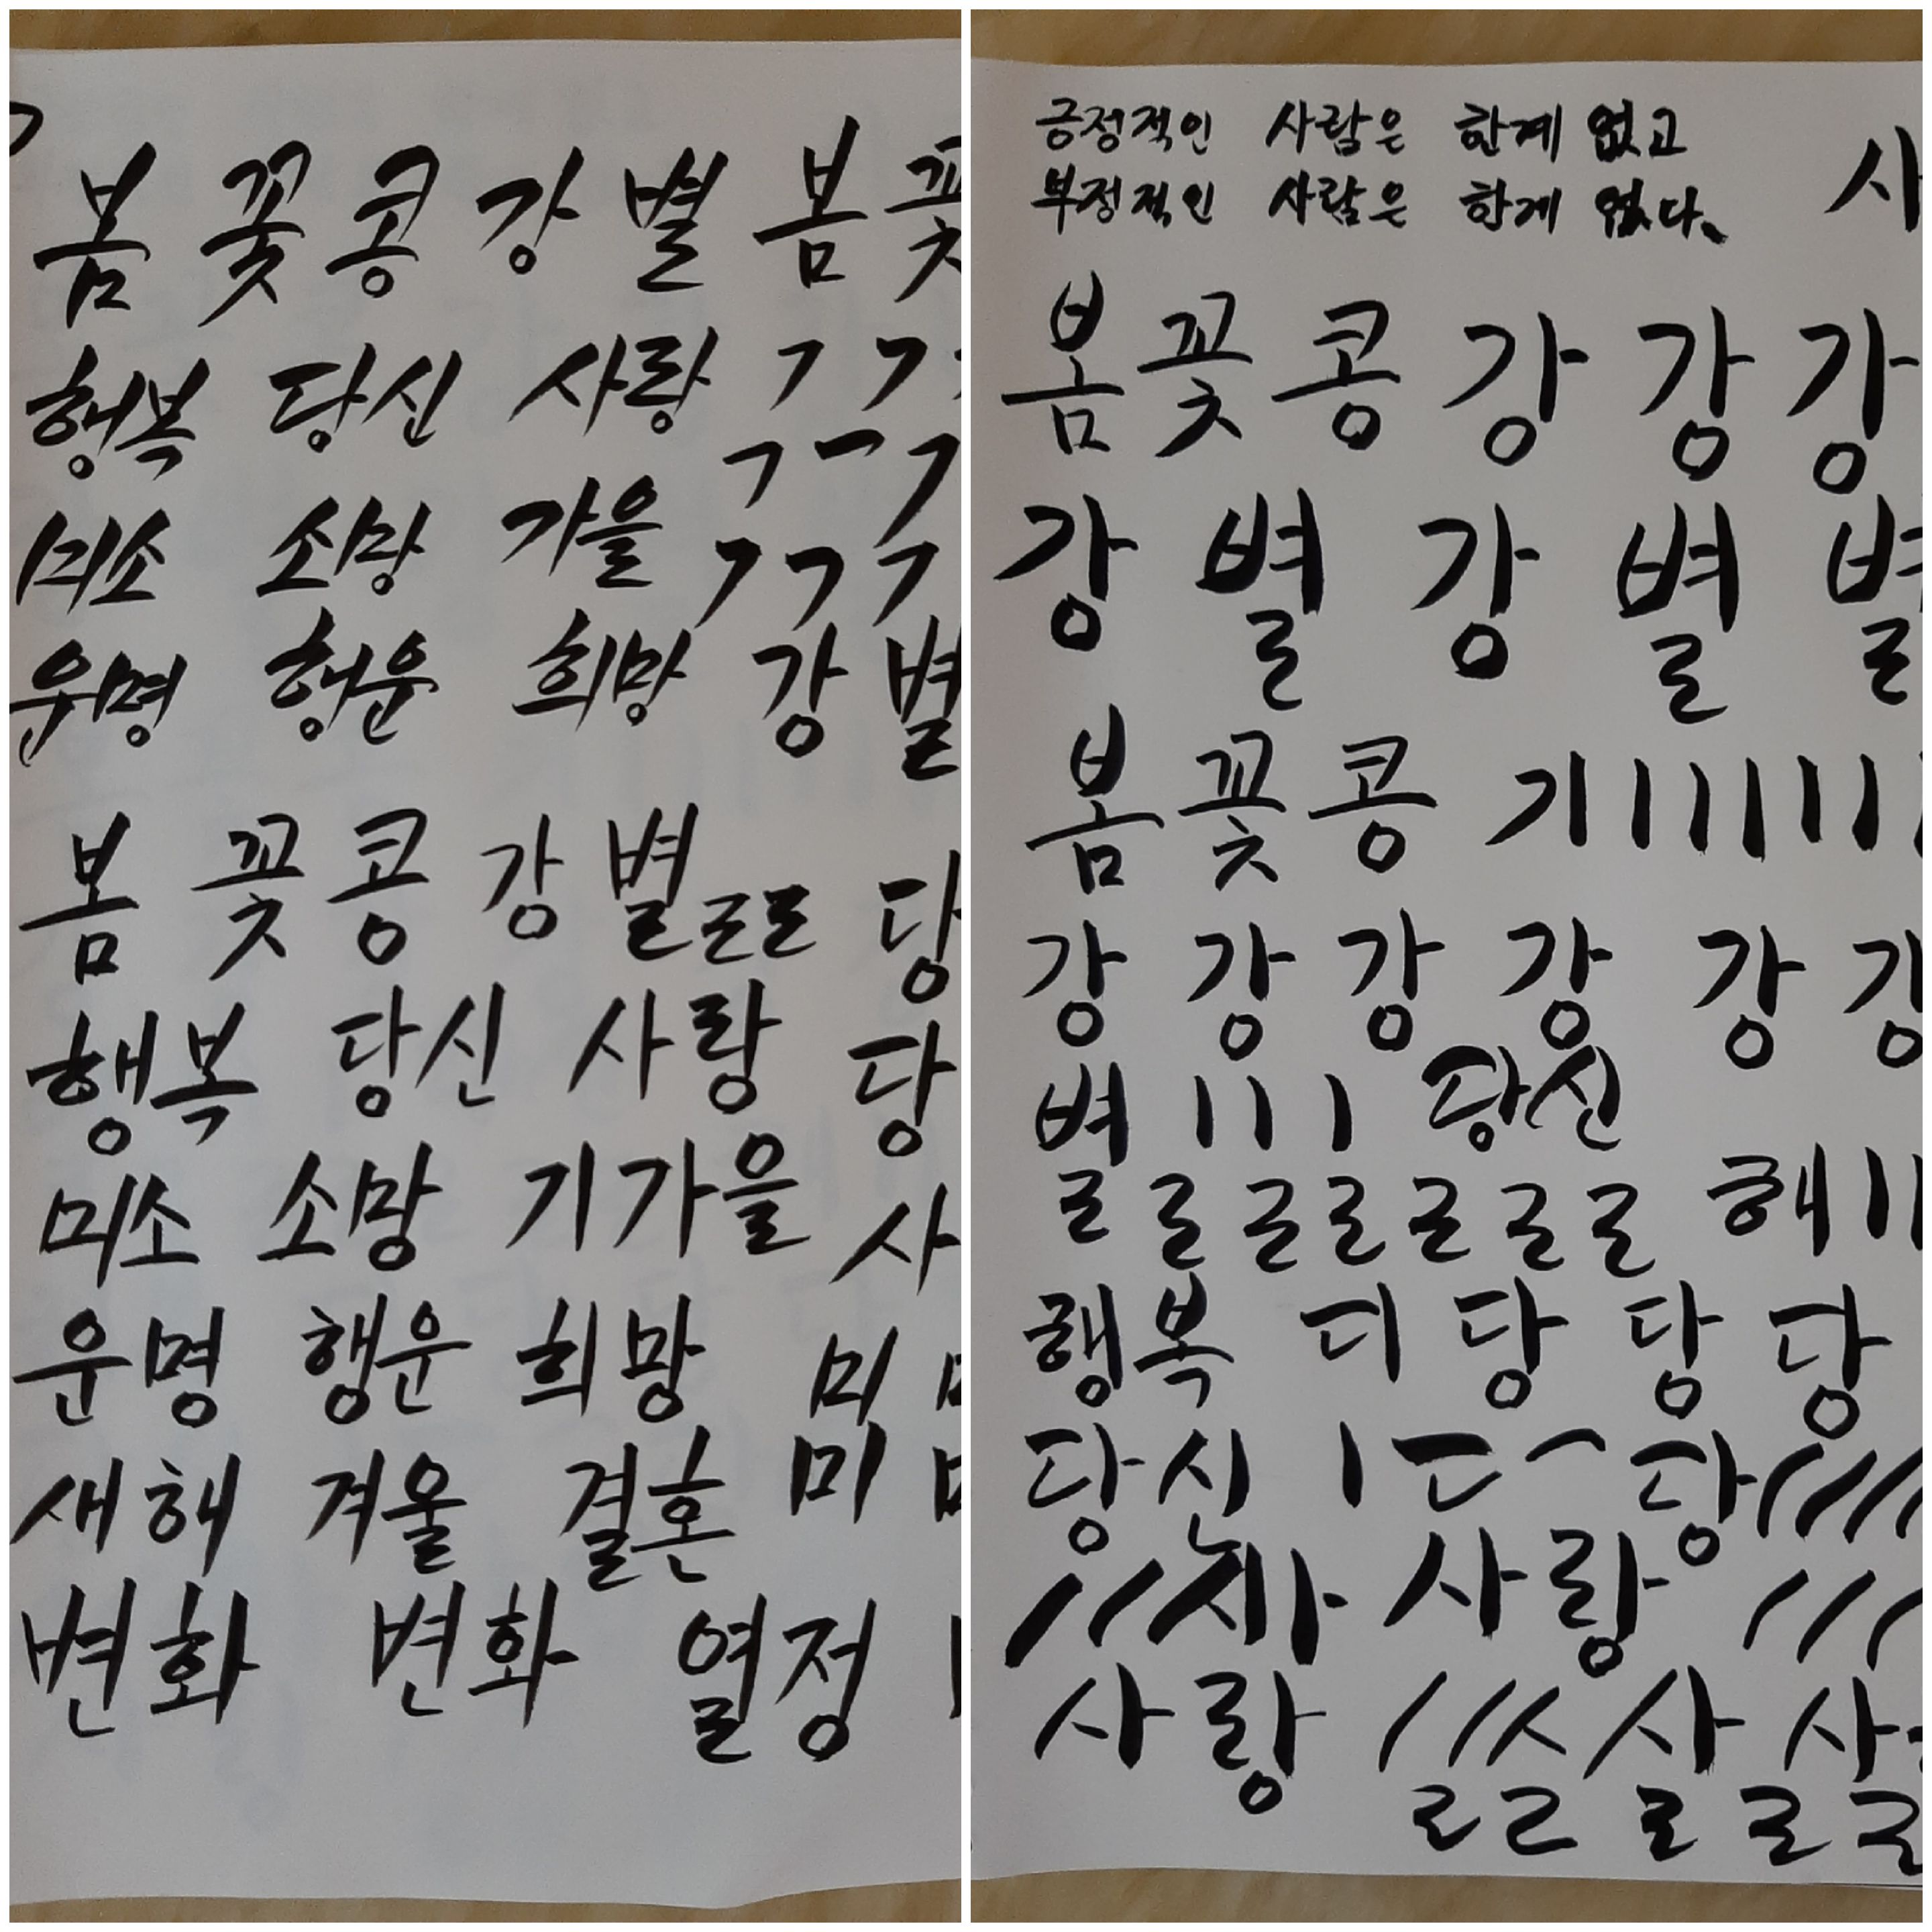 봄 꽃 콩 강 별 봄 꽃
행복 당신 사랑 ㄱ ㄱ
ㄱ ㄱ ㄱ
미소 소망 가을 ㄱ ㄱ ㄱ
운명 행운 희망 강 별
봄 꽃 콩 강 별 ㄹ ㄹ 당
행복 당신 사랑 당
미소 소망 기 가을 사
운명 행운 희망 미
새해 겨울 결혼 미
변화 변화 열정
긍정적인 사람은 한계 없고
부정적인 사람은 한게 없다.
사
봄 꽃 콩 강 강 강
강 별 강 별 별
봄 꽃 콩 기 ㅣ ㅣ ㅣ ㅣ ㅣ ㅣ
강 강 강 강 강 강
별 ㅣ ㅣ ㅣ 당신
ㄹ ㄹ ㄹ ㄹ ㄹ ㄹ 해 ㅣ ㅣ
행복 디 당 당 당
당신 ㅣ ㄷ 당
사랑
사랑 사
ㄹ ㄹ ㄹ ㄹ